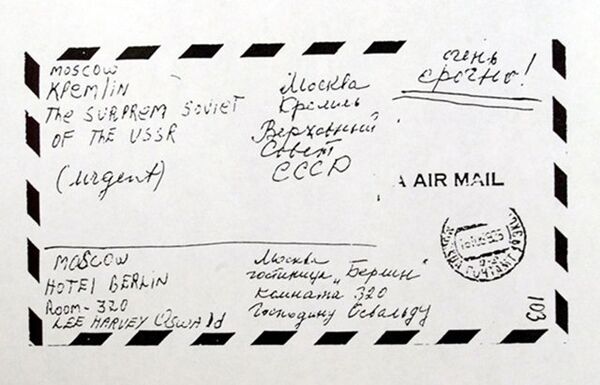 MOSCOW
KREMLIN
The SURPREM SOVIET
OF THE USSR
(urgent)
Москва
Кремль
Верховный
Совет
СССР
очень
срочно!
A AIR MAIL
MOSCOW
HOTEl BERLIN
Room - 320
LEE HARVEY OSWAld
Москва
гостиница „Берлин"
комната 320
Господину Освальду
103